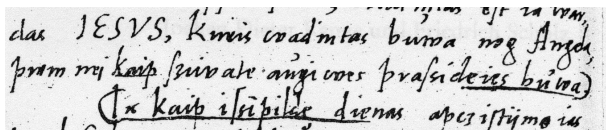 das IESVS, Kursis wadintas buwa nog Angela,
prem nei kaip sziwate augiwes prasideies buwa)
Ir kaip issipilde dienas apczistijmo ias